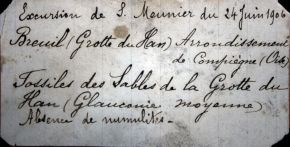 Excursion de S. Meunier du 24 Juin 1906
Breuil (Grotte du Han) Arrondissement
de Compiègne (Oise)
Fossiles des Sables de la Grotte du
Han (Glauconie moyenne)
Absence de numulites.